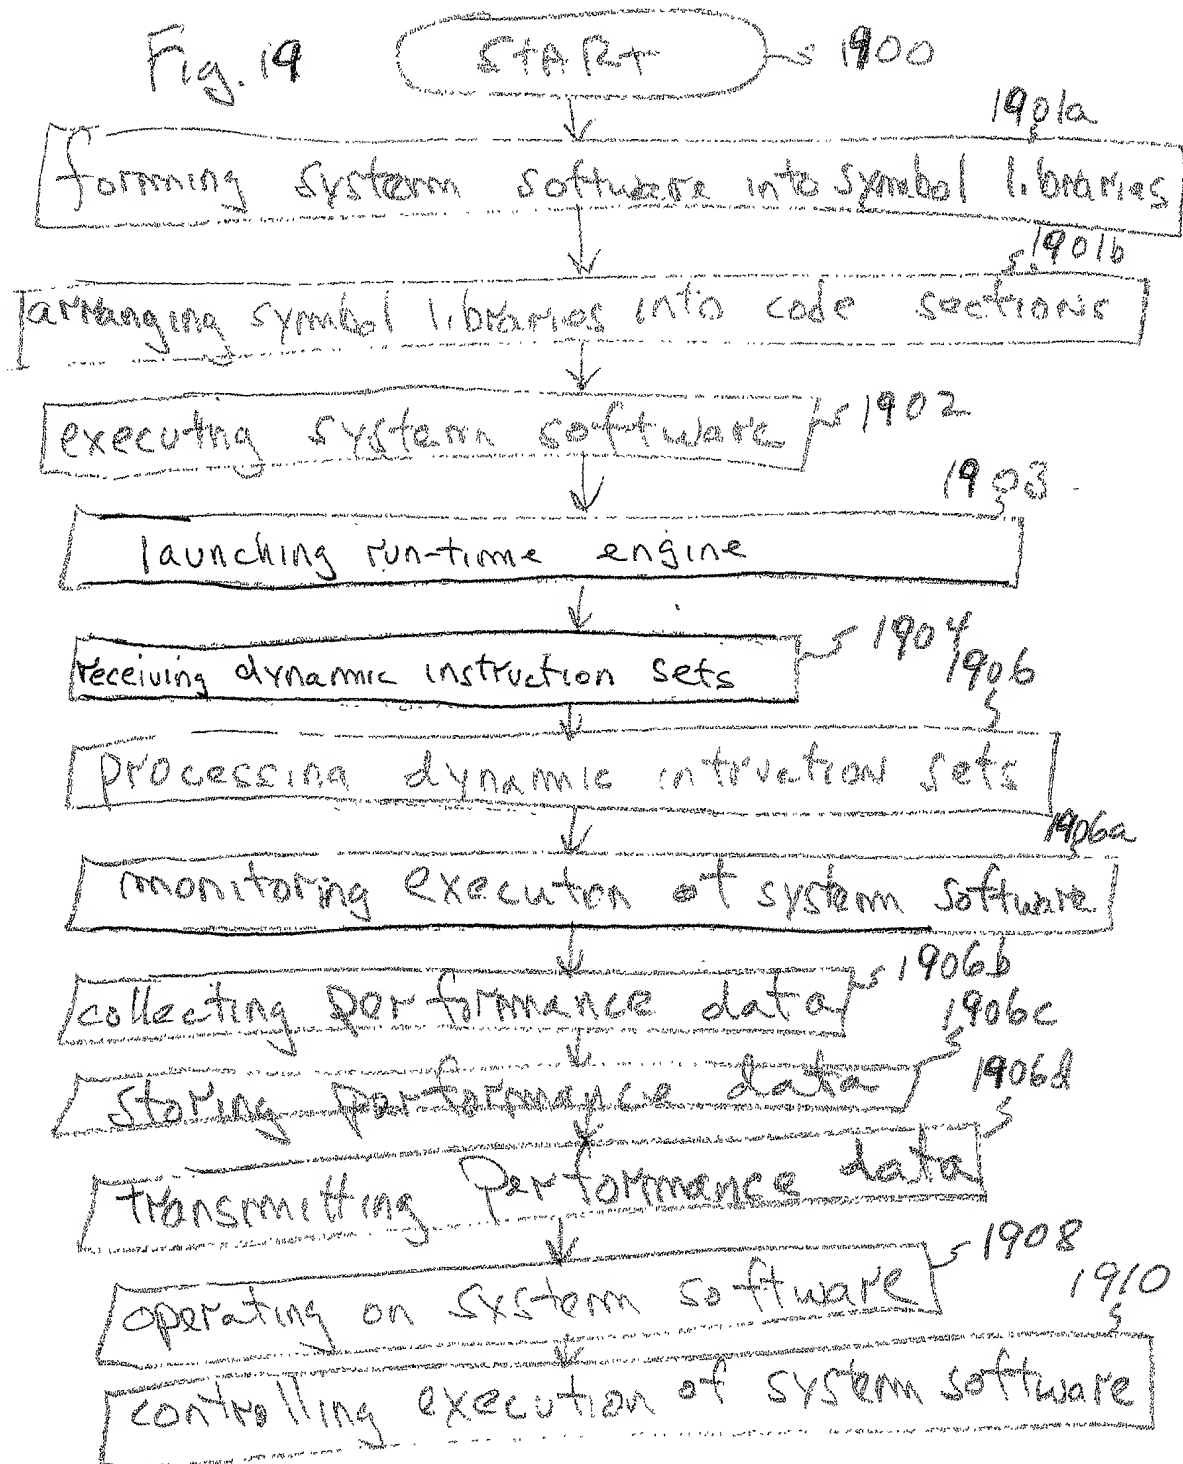 Fig. 19 START 1900
1901a
forming system software into symbol libraries
1901b
arranging symbol libraries into code sections
executng system software 1902
1903
launching run-time engine
receiving dynamic instruction sets 1904
1906
processing dynamic intruction sets
1906a
monitoring execution of system software
collecting performance data 1906b
1906c
storing performance data 1906d
transmitting performance data
operating on system software 1908
1910
controlling execution of system software